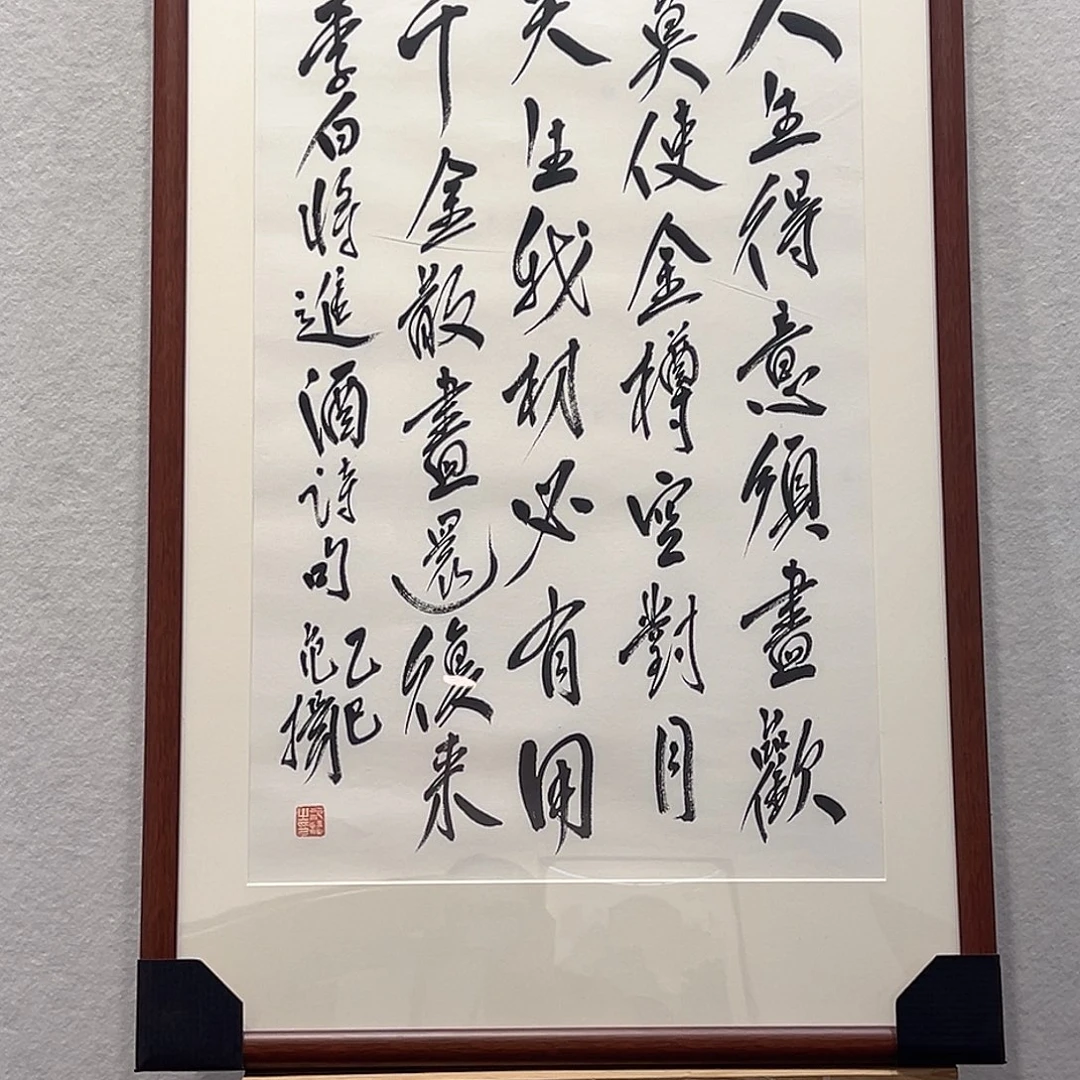 人生得意須盡歡
莫使金樽空對月
天生我材必有用
千金散盡還復来
李白將進酒詩句
乙巳